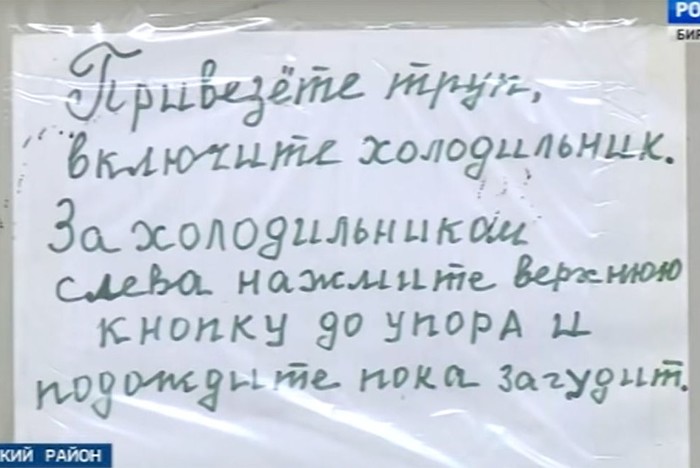 РО
БИР
Привезёте труп,
включите холодильник.
За холодильником
слева нажмите верхнюю
кнопку до упора и
подождите пока загудит.
КИЙ РАЙОН